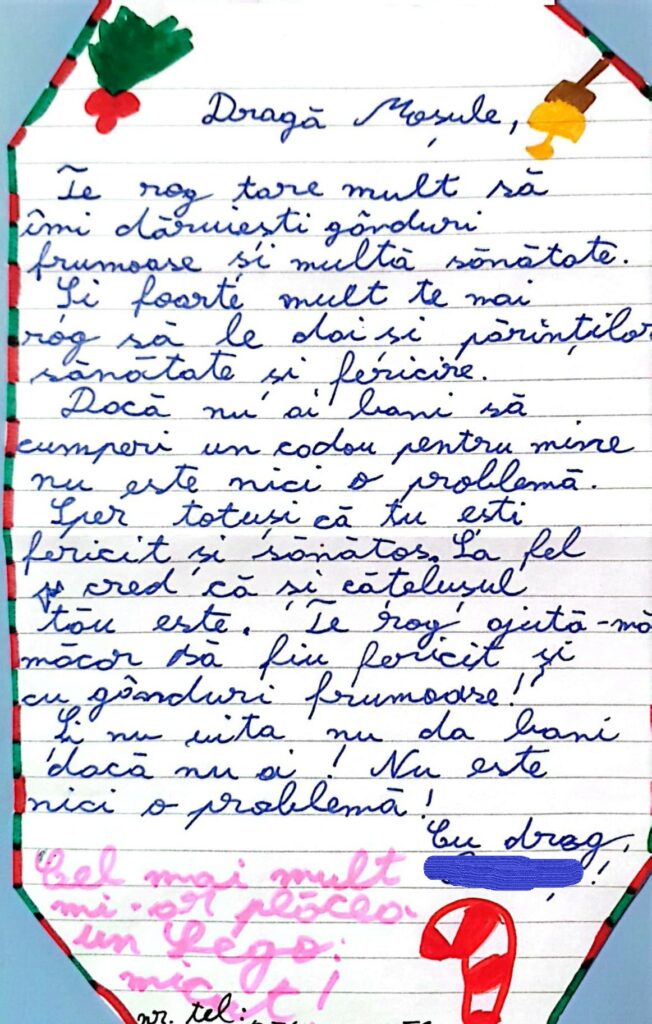 Dragă Moșule,
Te rog tare mult să
îmi dăruiești gânduri
frumoase și multă sănătate.
Și foarte mult te mai
rog să le dai și părinților
sănătate și fericire.
Dacă nu ai bani să
cumperi un cadou pentru mine
nu este nici o problemă.
Sper totuși că tu ești
fericit și sănătos. La fel
cred că și cățelușul
tău este. Te rog ajută-mă
măcar să fiu fericit și
cu gânduri frumoase!
Și nu uita nu da bani
dacă nu ai! Nu este
nici o problemă!
Cu drag,
!
Cel mai mult
mi-ar plăcea
un Lego:
nr. tel: